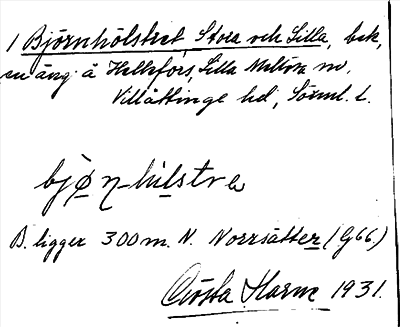 1 Björnhölstret Stora och Lilla, bek,
en äng å Hälleforś, Lilla Mellösa sn,
Villåttinge hd, Södml. l.
bjøṇ-hülstrə
B. ligger 300 m. N. Norrsätter (G66)
Gösta Harne 1931.